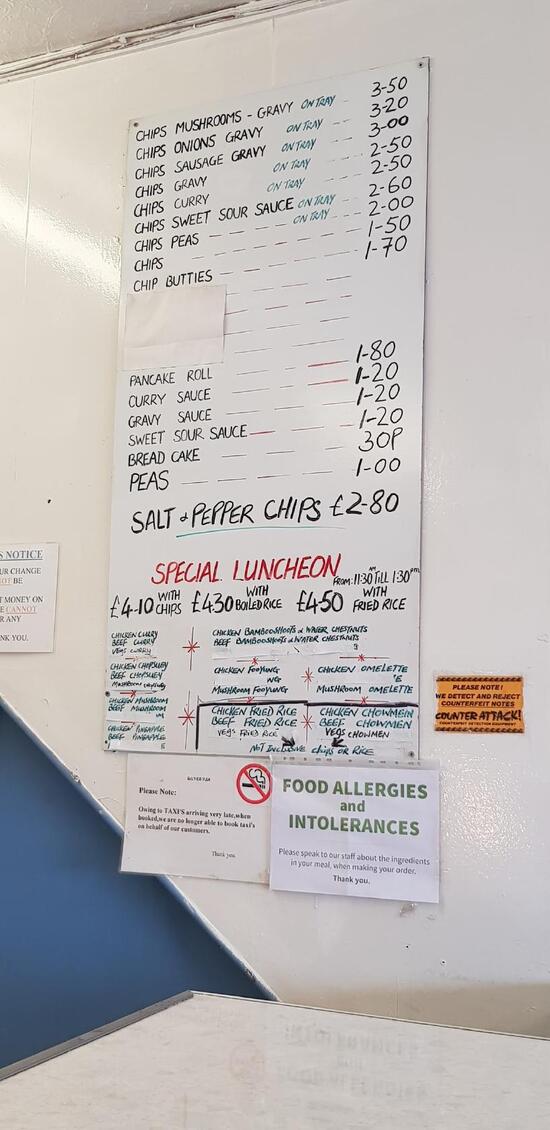 CHIPS MUSHROOMS - GRAVY ON TRAY 3-50
CHIPS ONIONS GRAVY ON TRAY 3-20
CHIPS SAUSAGE GRAVY ON TRAY 3-00
CHIPS GRAVY ON TRAY 2-50
CHIPS CURRY ON TRAY 2-50
CHIPS SWEET SOUR SAUCE ON TRAY 2-60
CHIPS PEAS ON TRAY 2-00
CHIPS 1-50
CHIP BUTTIES 1-70
PANCAKE ROLL 1-80
CURRY SAUCE 1-20
GRAVY SAUCE 1-20
SWEET SOUR SAUCE 1-20
BREAD CAKE 30P
PEAS 1-00
SALT & PEPPER CHIPS £2-80
SPECIAL LUNCHEON FROM: 11:30 AM TILL 1:30pm
£4-10 WITH CHIPS £4-30 WITH BOILED RICE £4-50 WITH FRIED RICE
CHICKEN CURRY
BEEF CURRY
VEGS CURRY
CHICKEN CHOPSUEY
BEEF CHOPSUEY
MUSHROOM CHOPSUEY
CHICKEN MUSHROOM
BEEF MUSHROOM
CHICKEN PINEAPPLE
BEEF PINEAPPLE
CHICKEN BAMBOOSHOOTS & WATER CHESTNUTS
BEEF BAMBOOSHOOTS & WATER CHESTNUTS
CHICKEN FOOYUNG
MUSHROOM FOOYUNG
CHICKEN OMELETTE
MUSHROOM OMELETTE
CHICKEN FRIED RICE
BEEF FRIED RICE
VEGS FRIED RICE
CHICKEN CHOWMEIN
BEEF CHOWMEIN
VEGS CHOWMEIN
NOT INCLUSIVE CHIPS OR RICE
S NOTICE
UR CHANGE
NOT BE
T MONEY ON
E CANNOT
R ANY
NK YOU.
PLEASE NOTE!
WE DETECT AND REJECT
COUNTERFEIT NOTES
COUNTER ATTACK!
COUNTERFEIT DETECTION EQUIPMENT
Please Note:
Owing to TAXI'S arriving very late,when
booked,we are no longer able to book taxi's
on behalf of our customers.
Thank you
FOOD ALLERGIES
and
INTOLERANCES
Please speak to our staff about the ingredients
in your meal, when making your order.
Thank you.